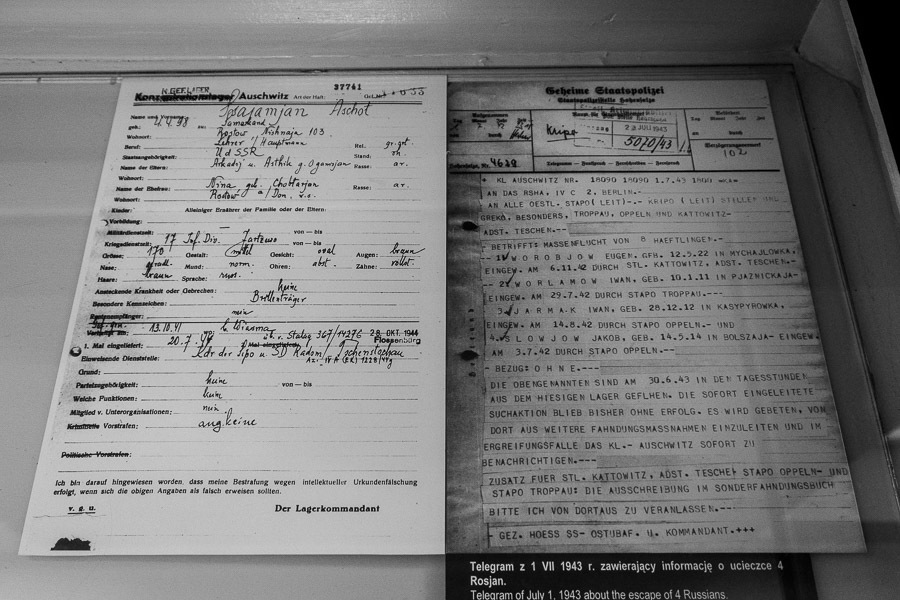 K. GEF. LAGER
Konzentrationslager Auschwitz Art der Haft: 37761
Agamjan Aschot
Name und Vorname:
geb.: 4.4.98 zu: Samarkand
Wohnort: Rostow Nishnaja 103
Beruf: Lehrer / Hauptmann Rel. gr. ort.
Staatsangehörigkeit: UdSSR Stand:
Name der Eltern: Arkadij u. Asthik g. Agamjan Rasse: ar.
Wohnort:
Name der Ehefrau: Nina geb. Rasse: ar.
Wohnort: Rostow a/Don,
Kinder: Alleiniger Ernährer der Familie oder der Eltern:
Vorbildung:
Militärdienstzeit: von — bis
Kriegsdienstzeit: 17 Inf. Div. von — bis
Grösse: 170 Gestalt: mittel Gesicht: oval Augen: braun
Nase: gradl. Mund: norm. Ohren: abst. Zähne: vollst.
Haare: braun Sprache: russ.
Ansteckende Krankheit oder Gebrechen: keine
Besondere Kennzeichen: Brillenträger
Rentenempfänger: nein
13.10.41 b. Wiasma
1. Mal eingeliefert: 20.7.44 v. Stalag 367/14276 28. OKT. 1944
Flossenbürg
Einweisende Dienststelle: Kdr der Sipo u SD Radom / Tschenstochau
Grund:
Parteizugehörigkeit: keine von — bis
Welche Funktionen: keine
Mitglied v. Unterorganisationen: nein
Kriminelle Vorstrafen: ang. keine
Politische Vorstrafen:
Ich bin darauf hingewiesen worden, dass meine Bestrafung wegen intellektueller Urkundenfälschung
erfolgt, wenn sich die obigen Angaben als falsch erweisen sollten.
v. g. u. Der Lagerkommandant
Geheime Staatspolizei
Staatspolizeistelle
Kripo
2 JULI 1943
5070/43
Tag Monat Jahr Zeit
an durch
Verzögerungsvermerk
102
Nr. 4622
Telegramm — Funkspruch — Fernschreiben — Fernspruch
+ KL AUSCHWITZ NR. 18090 18090 1.7.43 1800
AN DAS RSHA, IV C 2, BERLIN.-
AN ALLE OESTL. STAPO (LEIT)-- KRIPO (LEIT) STELLEN UND
GREKO, BESONDERS, TROPPAU, OPPELN UND KATTOWITZ-
ADST. TESCHEN.--
- BETRIFFT: MASSENFLUCHT VON 8 HAEFTLINGEN.-
- 1. WOROBJOW EUGEN, GEB. 12.5.22 IN MYCHAJLOWKA,
EINGEW. AM 6.11.42 DURCH STL. KATTOWITZ, ADST. TESCHEN.-
- 2. WORLAMOW IWAN, GEB. 10.1.11 IN PJAZNICKAJA-
EINGEW. AM 29.7.42 DURCH STAPO TROPPAU.---
- 3. JARMAK IWAN, GEB. 28.12.12 IN KASYPYROWKA,
EINGEW. AM 14.8.42 DURCH STAPO OPPELN.- UND
4. SLOWJOW JAKOB, GEB. 14.5.14 IN BOLSZAJA- EINGEW.
AM 3.7.42 DURCH STAPO OPPELN.--
- BEZUG: OHNE.----
DIE OBENGENANNTEN SIND AM 30.6.43 IN DEN TAGESSTUNDEN
AUS DEM HIESIGEN LAGER GEFLHEN. DIE SOFORT EINGELEITETE
SUCHAKTION BLIEB BISHER OHNE ERFOLG. ES WIRD GEBETEN, VON
DORT AUS WEITERE FAHNDUNGSMASSNAHMEN EINZULEITEN UND IM
ERGREIFUNGSFALLE DAS KL.- AUSCHWITZ SOFORT ZU
BENACHRICHTIGEN.---
ZUSATZ FUER STL. KATTOWITZ, ADST. TESCHEN STAPO OPPELN- UND
STAPO TROPPAU: DIE AUSSCHREIBUNG IM SONDERFAHNDUNGSBUCH
BITTE ICH VON DORTAUS ZU VERANLASSEN.--
- GEZ. HOESS SS- OSTUBAF. U. KOMMANDANT.+++
Telegram z 1 VII 1943 r. zawierający informację o ucieczce 4
Rosjan.
Telegram of July 1, 1943 about the escape of 4 Russians.